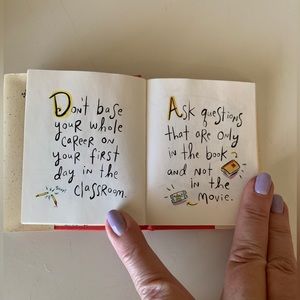 Don't base
your whole
career on
your first
day in the
classroom.
Ask questions
that are only
in the book
and not
in the
movie.